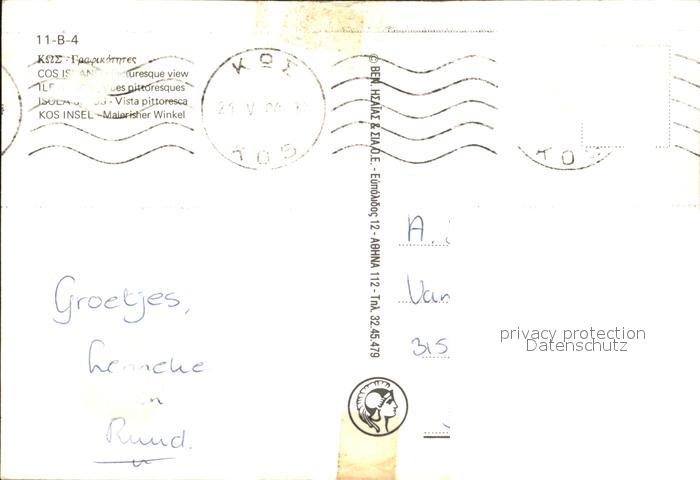 11-B-4
ΚΩΣ - Γραφικότητες
COS ISLAND - Picturesque view
pittoresques
Vista pittoresca
KOS INSEL - Malerisher Winkel
ΚΩΣ
ΚΩΣ
© ΒΕΝ. ΗΣΑΪΑΣ & ΣΙΑ Ο.Ε. - Εὐπόλιδος 12 - ΑΘΗΝΑ 112 - Τηλ. 32.45.479
Groetjes,
Lenneke
en
Ruud.
A.
Van
315
privacy protection
Datenschutz